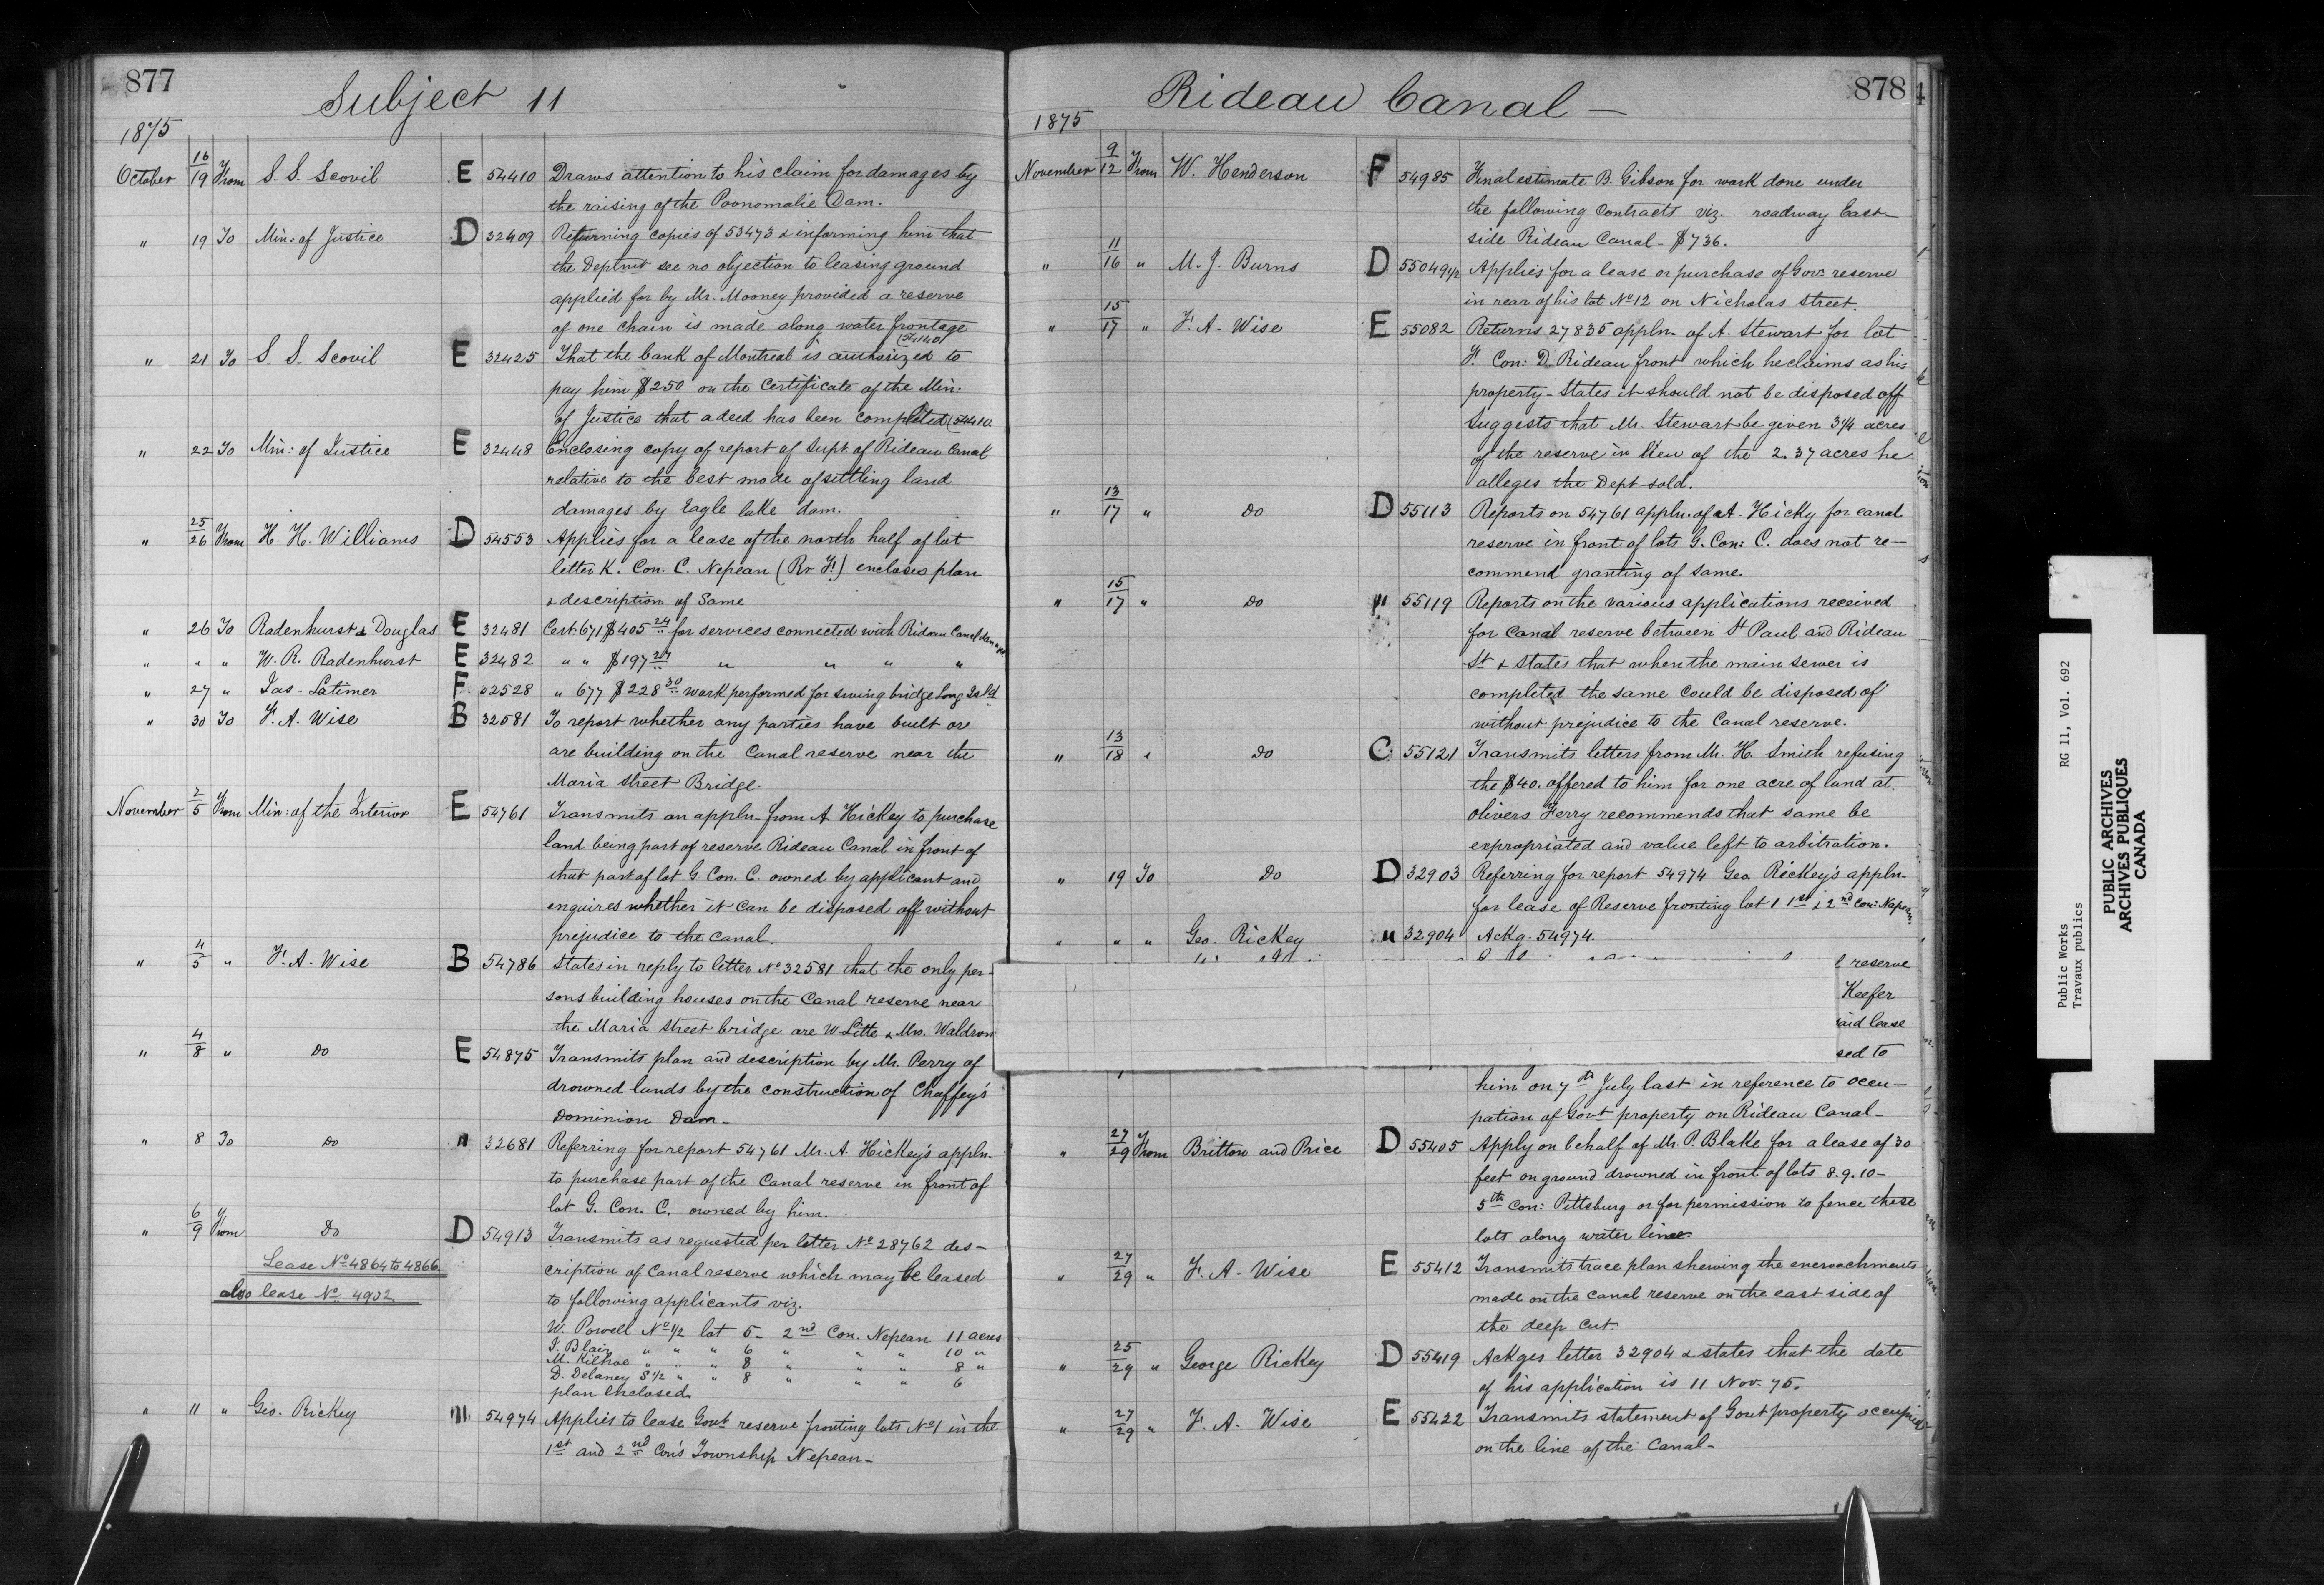 877
Subject 11
1875
October 16/19 From S. S. Scovil E 54410 Draws attention to his claim for damages by
the raising of the Poonomalie Dam.
" 19 To Min: of Justice D 32409 Returning copies of 53473 & informing him that
the Deptmt see no objection to leasing ground
applied for by Mr. Mooney provided a reserve
of one chain is made along water frontage
" 21 To S. S. Scovil E 32425 That the bank of Montreal is authorized to
pay him $250 on the Certificate of the Min:
of Justice that a deed has been completed (54410
" 22 To Min: of Justice E 32448 Enclosing copy of report of Supt. of Rideau Canal
relative to the best mode of settling land
damages by Eagle lake dam.
" 25/26 From H. H. Williams D 54553 Applies for a lease of the north half of lot
letter K. Con. C. Nepean (Rr Ft) encloses plan
& description of Same
" 26 To Radenhurst & Douglas E 32481 Cert. 671 $405 24 for services connected with Rideau Canal damages
" " " W. R. Radenhurst E 32482 " " $197 27 " " " "
" 27 " Jas. Latimer F 32528 " 677 $228 30 work performed for swing bridge Long Isld
" 30 To F. A. Wise B 32581 To report whether any parties have built or
are building on the Canal reserve near the
Maria Street Bridge.
November 2/5 From Min: of the Interior E 54761 Transmits an appln from A Hickey to purchase
land being part of reserve Rideau Canal in front of
that part of lot G. Con. C. owned by applicant and
enquires whether it can be disposed off without
prejudice to the Canal.
" 4/5 " F. A. Wise B 54786 States in reply to letter No 32581 that the only per-
sons building houses on the Canal reserve near
the Maria Street bridge are W. Litte & Mrs. Waldron
" 4/8 " Do E 54875 Transmits plan and description by Mr. Perry of
drowned lands by the construction of Chaffey's
Dominion Dam -
" 8 To Do " 32681 Referring for report 54761 Mr. A. Hickey's appln.
to purchase part of the Canal reserve in front of
lot G. Con. C. owned by him.
" 6/9 From Do D 54913 Transmits as requested per letter No 28762 des-
Lease No 4864 to 4866. cription of Canal reserve which may be leased
also lease No 4902. to following applicants viz.
W. Powell No 1/2 lot 5 - 2nd Con. Nepean 11 acres
J. Blair " " " 6 " " " 10 "
M. Kilroe " " " 8 " " " 8 "
D. Delaney S 1/2 " " 8 " " " 6
plan Enclosed.
" 11 " Geo. Rickey " 54974 Applies to lease Govt reserve fronting lots No 1 in the
1st and 2nd Con's Township Nepean -
Rideau Canal -
878
1875
November 9/12 From W. Henderson F 54985 Final estimate B. Gibson for work done under
the following Contracts viz. roadway East
side Rideau Canal - $736.
" 11/16 " M. J. Burns D 55049 1/2 Applies for a lease or purchase of Gov. reserve
in rear of his lot No 12 on Nicholas Street.
" 15/17 " F. A. Wise E 55082 Returns 27835 appln. of A. Stewart for lot
F. Con: D. Rideau front which he claims as his
property - States it should not be disposed off
Suggests that Mr. Stewart be given 3 1/4 acres
of the reserve in lieu of the 2.37 acres he
alleges the Dept sold.
" 13/17 " Do D 55113 Reports on 54761 appln. of A. Hicky for canal
reserve in front of lots G. Con: C. does not re-
commend granting of same.
" 15/17 " Do " 55119 Reports on the various applications received
for Canal reserve between St Paul and Rideau
St & states that when the main sewer is
completed the same could be disposed of
without prejudice to the Canal reserve.
" 13/18 " Do C 55121 Transmits letters from Mr. H. Smith refusing
the $40. offered to him for one acre of land at
Olivers Ferry recommends that same be
expropriated and value left to arbitration.
" 19 To Do D 32903 Referring for report 54974 Geo Rickey's appln
for lease of Reserve fronting lot 1 1st & 2nd Con: Nepean
" " " Geo. Rickey " 32904 Ackg. 54974.
reserve
Keefer
aid lease
sed to
him on 7th July last in reference to occu-
pation of Govt property on Rideau Canal -
" 27/29 From Britton and Price D 55405 Apply on behalf of Mr. P. Blake for a lease of 30
feet on ground drowned in front of lots 8. 9. 10 -
5th Con: Pittsburg or for permission to fence these
lots along water line.
" 27/29 " F. A. Wise E 55412 Transmits trace plan shewing the encroachments
made on the canal reserve on the east side of
the deep cut.
" 25/29 " George Rickey D 55419 Ackges letter 32904 & states that the date
of his application is 11 Nov. 75.
" 27/29 " F. A. Wise E 55422 Transmits statement of Govt property occupied
on the line of the Canal -
Public Works RG 11, Vol. 692
Travaux publics
PUBLIC ARCHIVES
ARCHIVES PUBLIQUES
CANADA